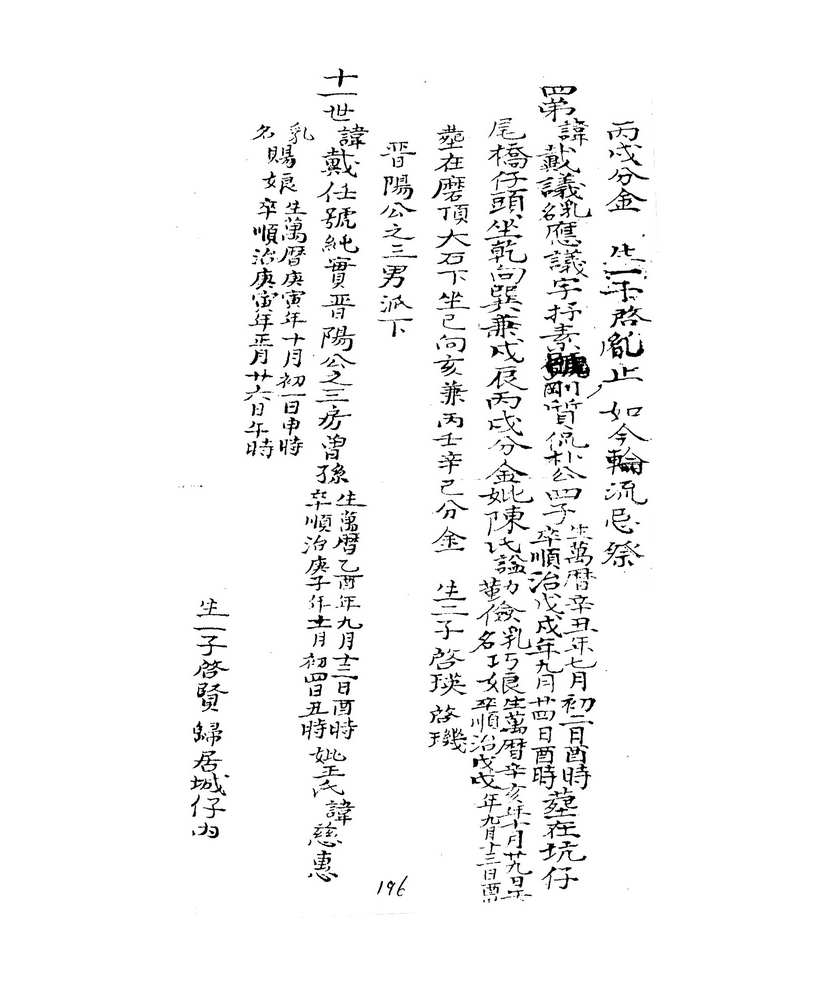 丙戌分金 生一子啓胤止 如今輪流忌祭
四弟諱戴議乳名應議字抒素剛質侃朴公四子生萬曆辛丑年七月初二日酉時卒順治戊戌年九月廿四日酉時葬在坑仔
尾橋仔頭坐乾向巽兼戌辰丙戌分金妣陳氏謚勤儉乳名巧娘生萬曆辛亥年十月廿九日卒順治戊戌年九月十三日酉
葬在磨頂大石下坐巳向亥兼丙壬辛巳分金 生二子啓瑛啓璣
晋陽公之三男派下
十一世諱戴任號純實晋陽公之三房曾孫生萬曆乙酉年九月十三日酉時卒順治庚子年十一月初四日丑時妣王氏諱慈惠
乳名賜娘生萬曆庚寅年十月初一日申時卒順治庚寅年正月廿六日午時
生一子啓賢歸居城仔内
196